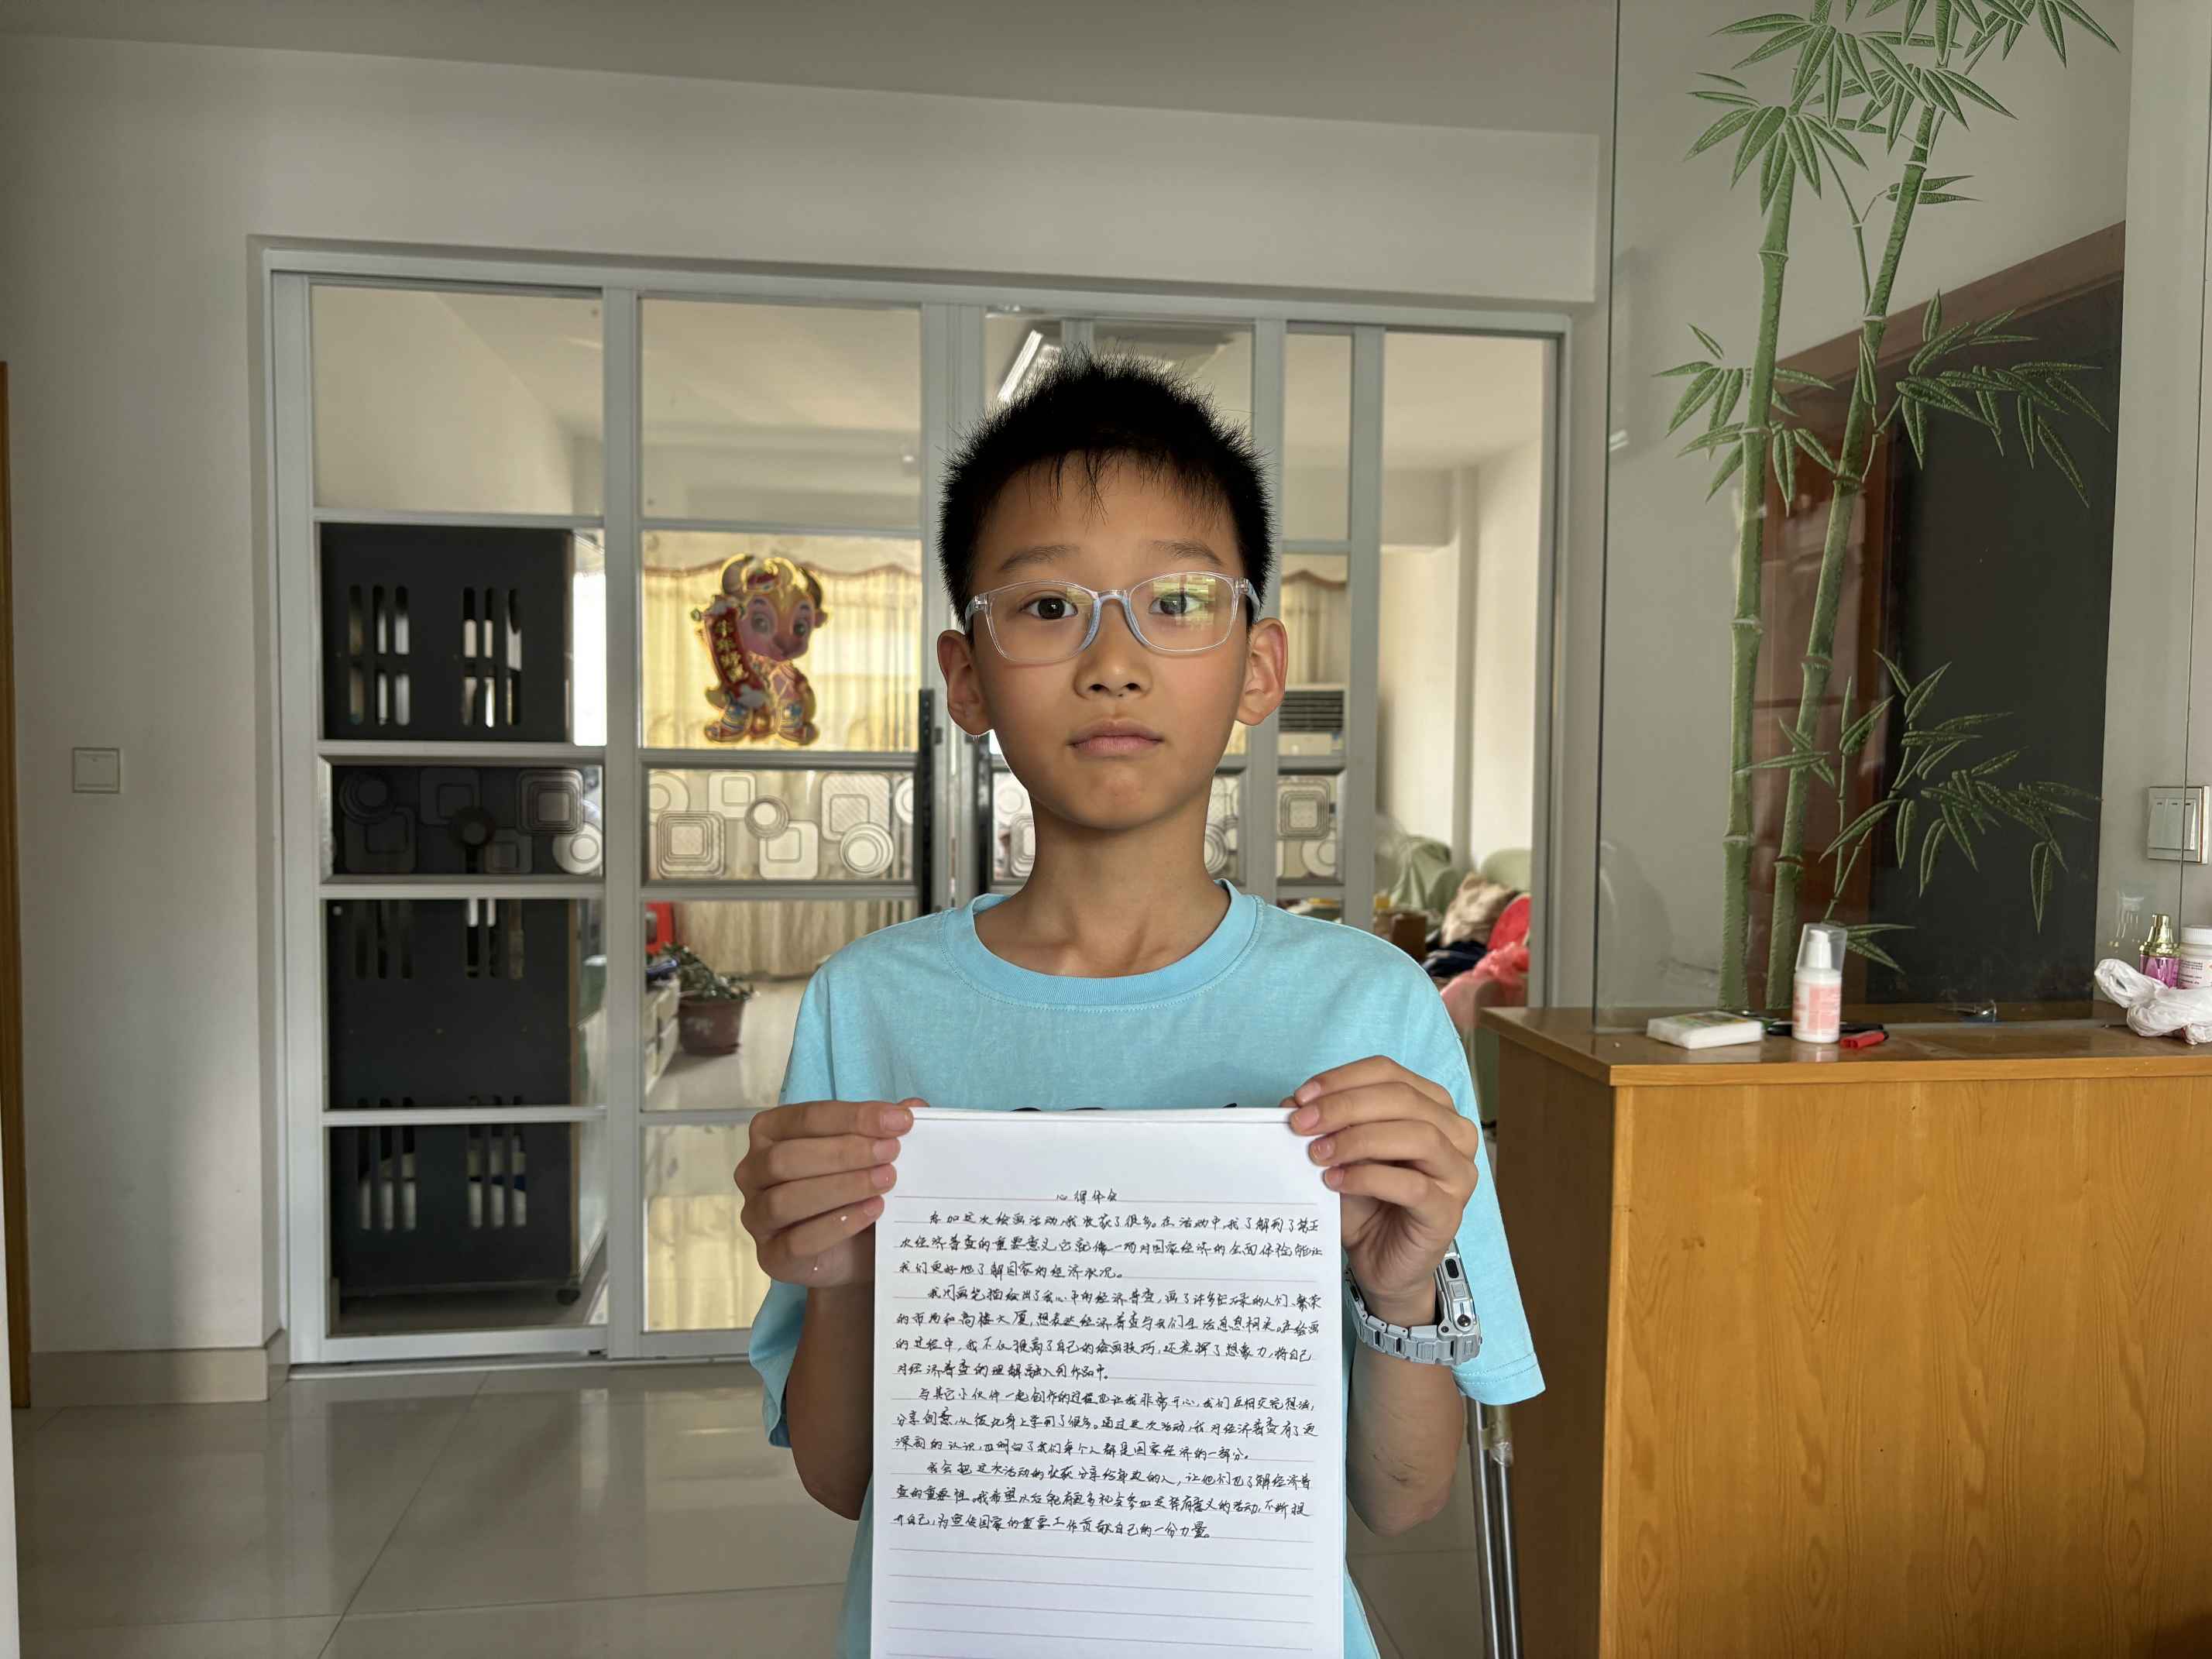 心得体会
参加这次绘画活动,我收获了很多。在活动中,我了解到了第五
次经济普查的重要意义,它就像一场对国家经济的全面体检,能让
我们更好地了解国家的经济状况。
我用画笔描绘出了我心中的经济普查,画了许多忙碌的人们、繁荣
的市场和高楼大厦,想表达经济普查与我们生活息息相关。在绘画
的过程中,我不仅提高了自己的绘画技巧,还发挥了想象力,将自己
对经济普查的理解融入到作品中。
与其它小伙伴一起创作的过程也让我非常开心,我们互相交流想法,
分享创意,从彼此身上学到了很多。通过这次活动,我对经济普查有了更
深刻的认识,也明白了我们每个人都是国家经济的一部分。
我会把这次活动的收获分享给身边的人,让他们也了解经济普
查的重要性。我希望以后能有更多机会参加这样有意义的活动,不断提
升自己,为宣传国家的重要工作贡献自己的一份力量。